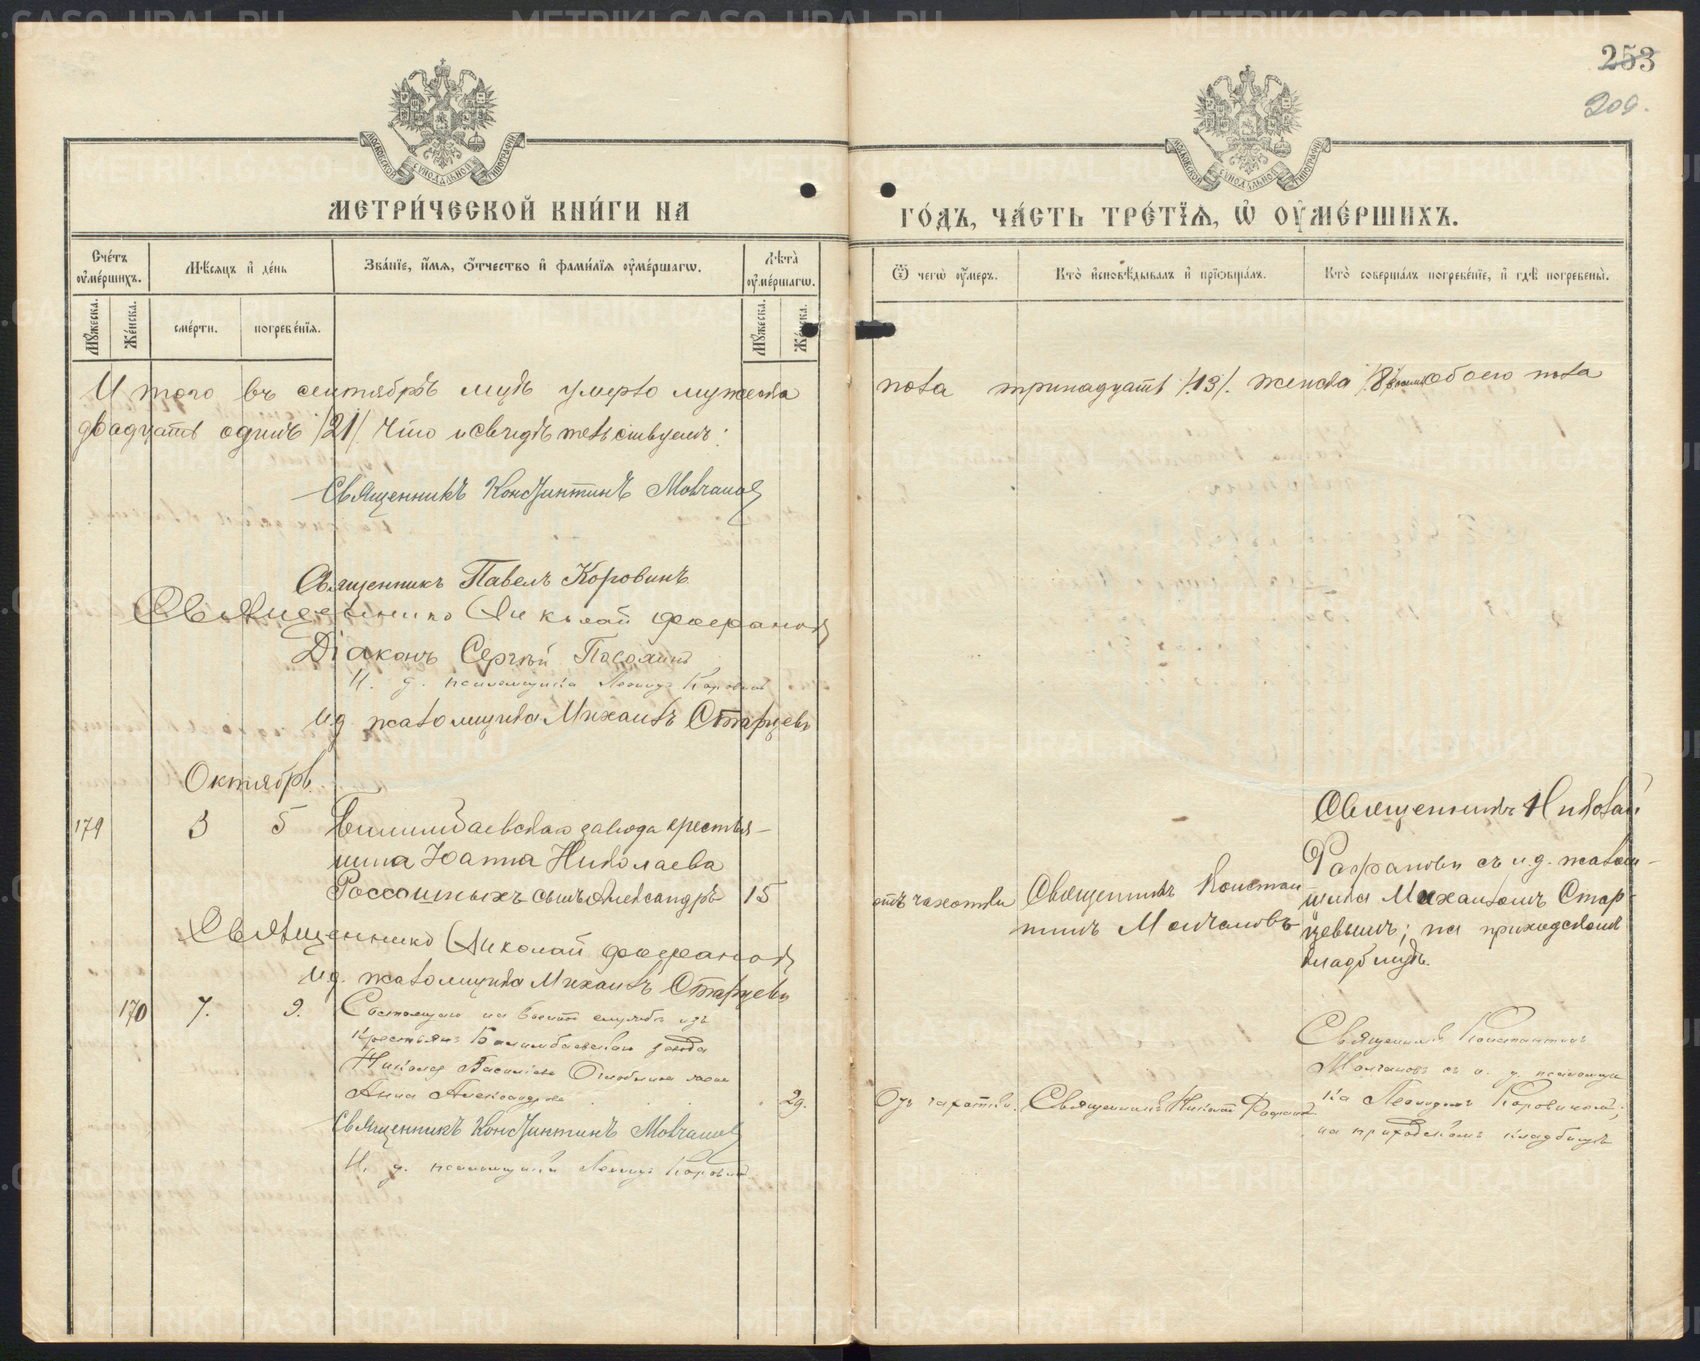 253
209.
МЕТРИ́ЧЕСКОЙ КНИ́ГИ НА
ГО́ДЪ, ЧА́СТЬ ТРЕ́ТЇѦ, Ѡ҆ ОУ҆МЕ́РШИХЪ.
Сче́тъ оу҆ме́ршихъ.
Мѣ́сяцъ и҆ де́нь
Зва́нїе, и҆́мѧ, ѻ҆́тчество и҆ фами́лїѧ оу҆ме́ршагѡ.
Лѣ́та оу҆ме́ршагѡ.
Ѿ чегѡ̀ оу҆́меръ.
Кто̀ и҆сповѣ́дывалъ и҆ прїѻбща́лъ.
Кто̀ соверша́лъ погребе́нїе, и҆ гдѣ̀ погребены̀.
Мꙋ́жеска.
Же́нска.
сме́рти.
погребе́нїѧ.
Мꙋ́жеска.
Же́нска.
Итого въ сентябрѣ м-цѣ умерло мужеска
пола тринадцать /13/. женска /8/ обоего пола
двадцать одинъ /21/ Что и свидѣтельствуемъ:
Священникъ Константинъ Молчановъ
Священникъ Павелъ Коровинъ
Священникъ Николай Фофановъ
Діаконъ Сергѣй
И. д. псаломщика Леонидъ Коровинъ
И. д. псаломщика Михаилъ Старцевъ
Октябрь.
179 3 5 Билимбаевскаго завода крестья-
нина Іоанна Николаева
Россошныхъ сынъ Александръ 15
отъ чахотки
Священникъ Констан
тинъ Молчановъ
Священникъ Николай
Фофановъ съ и. д. псалом-
щика Михаиломъ Стар-
цевымъ; на приходскомъ
кладбищѣ.
Священникъ Николай Фофановъ
И. д. псаломщика Михаилъ Старцевъ
170 7. 9. Состоящаго на военной службѣ изъ
крестьянъ Билимбаевскаго завода
Николая Васильева жена
Анна Александрова . 29.
Отъ чахотки.
Священникъ Николай Фофановъ
Священникъ Константинъ
Молчановъ съ и. д. псаломщи
ка Леонидомъ Коровинымъ;
на приходскомъ кладбищѣ
Священникъ Константинъ Молчановъ
И. д. псаломщика Леонидъ Коровинъ
METRIKI.GASO-URAL.RU